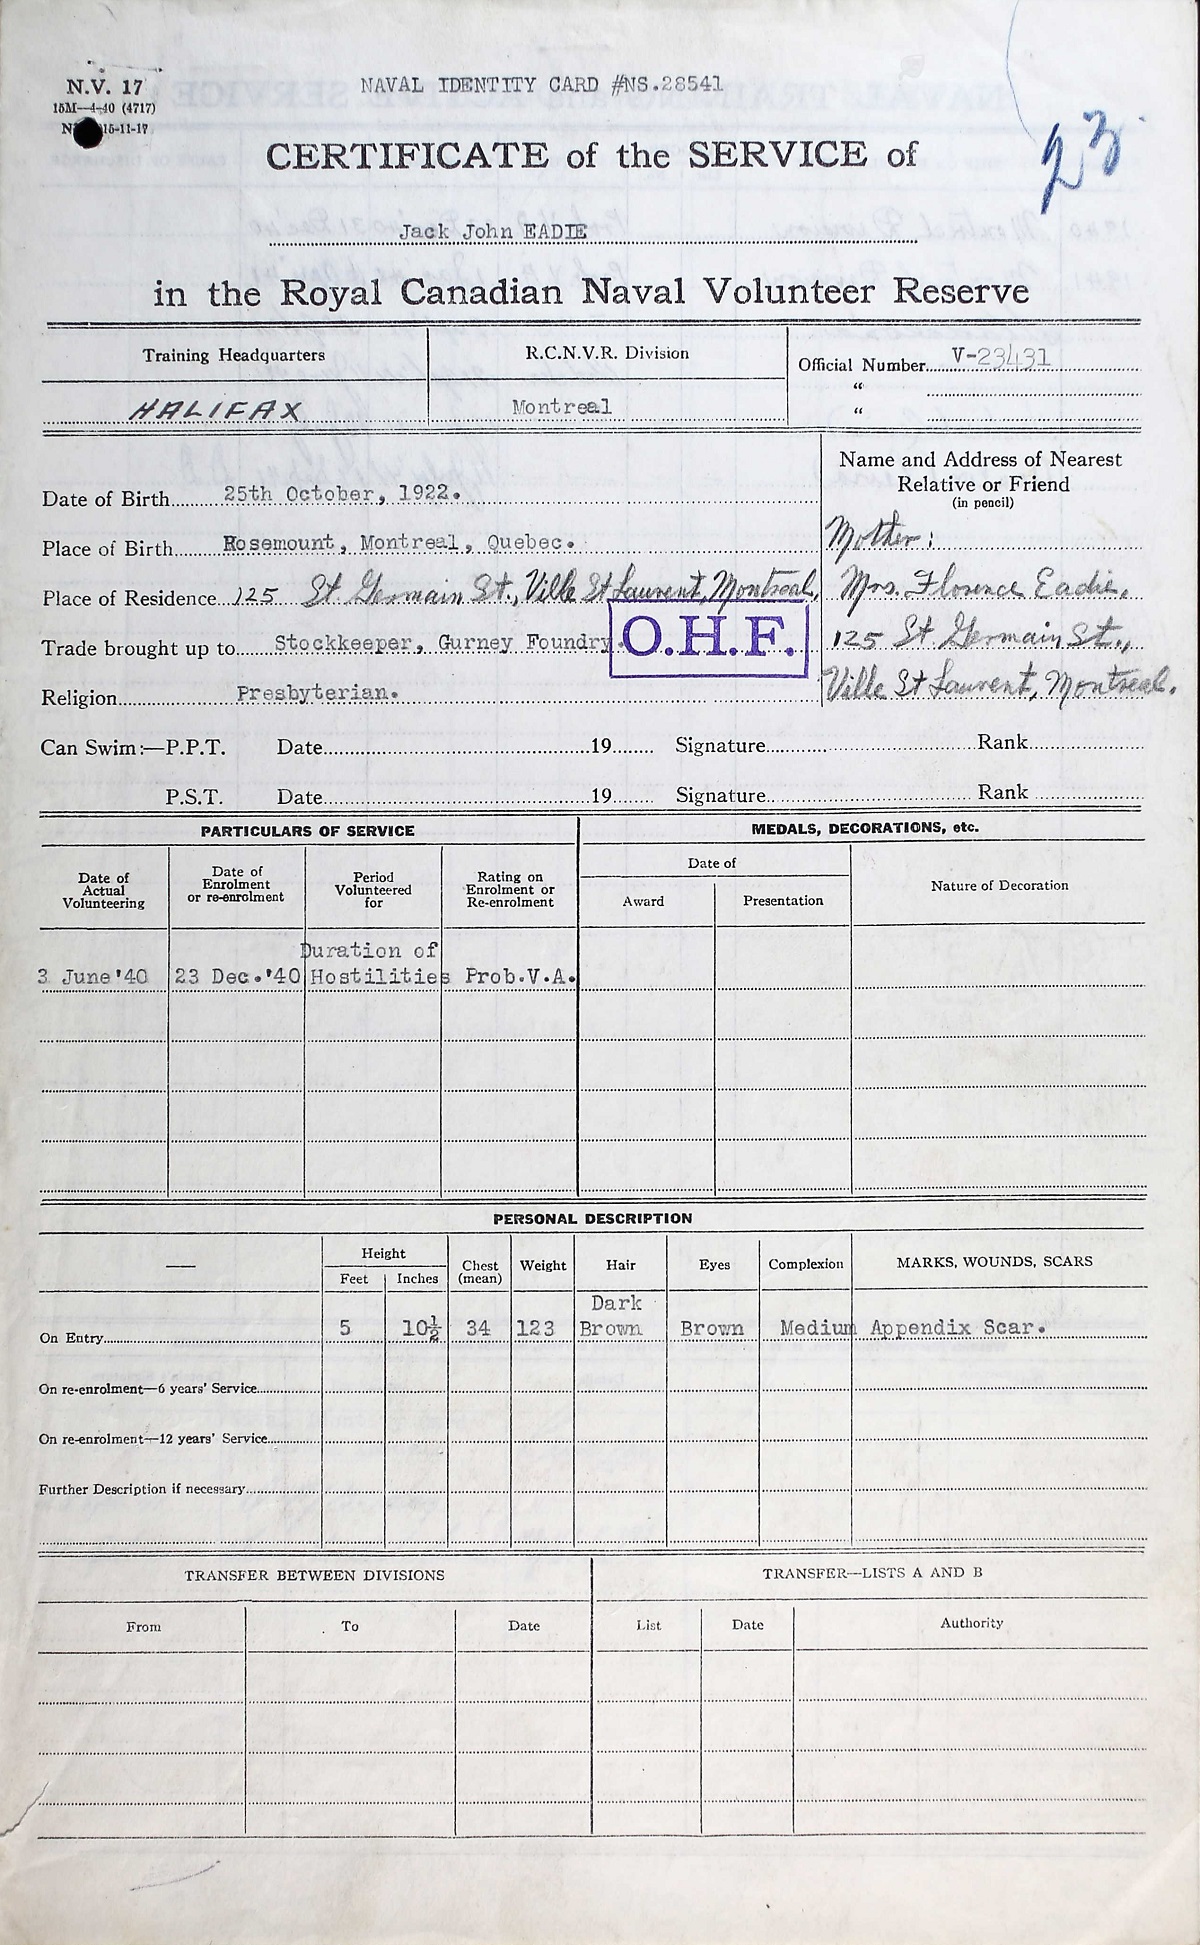 N.V. 17
NAVAL IDENTITY CARD #NS.28541
15M—4-40 (4717)
15-11-17
23
CERTIFICATE of the SERVICE of
Jack John EADIE
in the Royal Canadian Naval Volunteer Reserve
Training Headquarters
R.C.N.V.R. Division
Official Number V-23431
"
HALIFAX
Montreal
"
Name and Address of Nearest
Relative or Friend
(in pencil)
Date of Birth 25th October, 1922.
Mother:
Place of Birth Rosemount, Montreal, Quebec.
Place of Residence 125 St. Germain St., Ville St Laurent, Montreal,
Mrs. Florence Eadie,
Trade brought up to Stockkeeper, Gurney Foundry.
O.H.F.
125 St. Germain St.,
Religion Presbyterian.
Ville St Laurent, Montreal.
Can Swim:—P.P.T. Date 19 Signature Rank
P.S.T. Date 19 Signature Rank
PARTICULARS OF SERVICE
MEDALS, DECORATIONS, etc.
Date of
Actual
Volunteering
Date of
Enrolment
or re-enrolment
Period
Volunteered
for
Rating on
Enrolment or
Re-enrolment
Date of
Award
Presentation
Nature of Decoration
3 June '40
23 Dec. '40
Duration of
Hostilities
Prob.V.A.
PERSONAL DESCRIPTION
—
Height
Feet
Inches
Chest
(mean)
Weight
Hair
Eyes
Complexion
MARKS, WOUNDS, SCARS
On Entry
5
10½
34
123
Dark
Brown
Brown
Medium
Appendix Scar.
On re-enrolment—6 years' Service
On re-enrolment—12 years' Service
Further Description if necessary
TRANSFER BETWEEN DIVISIONS
TRANSFER—LISTS A AND B
From
To
Date
List
Date
Authority